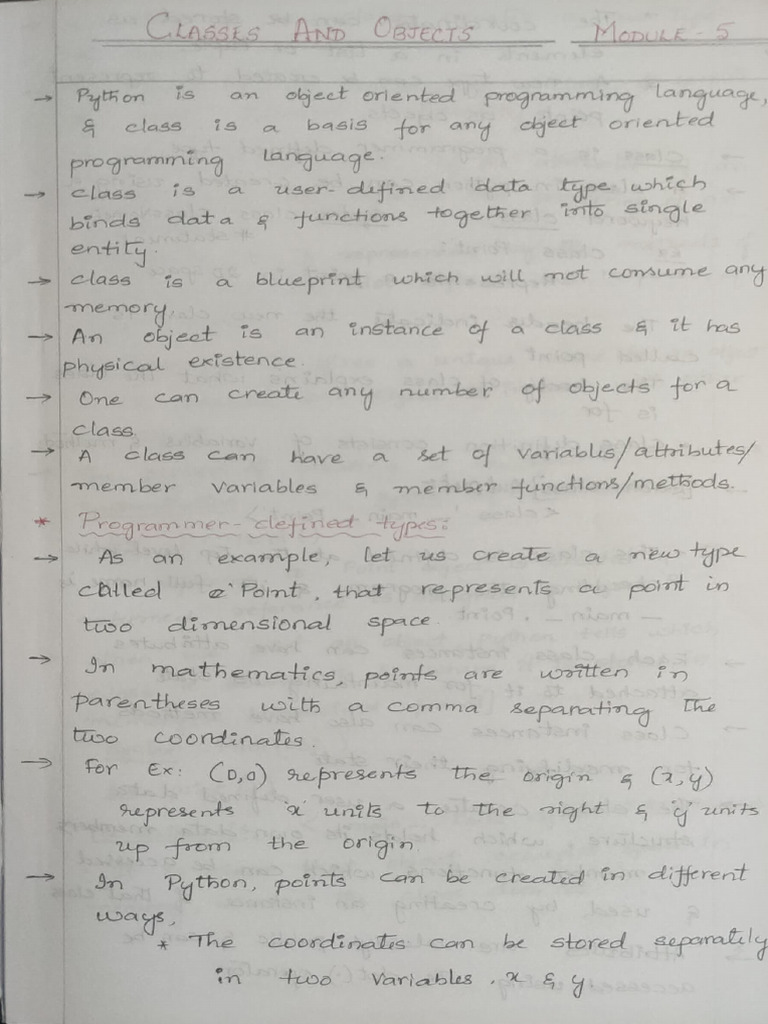 CLASSES AND OBJECTS MODULE - 5
→ Python is an object oriented programming language,
& class is a basis for any object oriented
programming language.
→ class is a user-defined data type which
binds data & functions together into single
entity.
→ class is a blueprint which will not consume any
memory
→ An object is an instance of a class & it has
physical existence.
→ One can create any number of objects for a
class.
→ A class can have a set of variables/attributes/
member variables & member functions/methods.
* Programmer-defined types:
→ As an example, let us create a new type
called Point, that represents a point in
two dimensional space.
→ In mathematics, points are written in
parentheses with a comma separating the
two coordinates.
→ For Ex: (0,0) represents the origin & (x,y)
represents 'x' units to the right & 'y' units
up from the origin.
→ In Python, points can be created in different
ways,
* The coordinates can be stored separately
in two variables, x & y